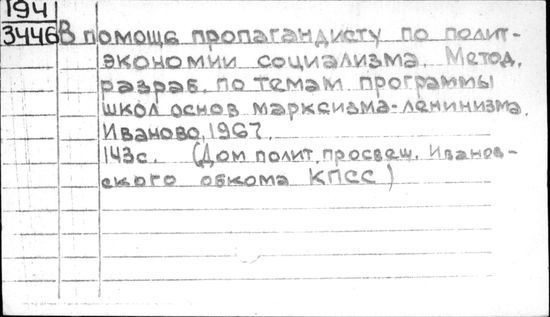 194
3446 В помощь пропагандисту по полит-
экономии социализма. Метод.
разраб. по темам программы
школ основ марксизма-ленинизма.
Иваново, 1967.
143с. (Дом полит. просвещ. Иванов-
ского обкома КПСС)